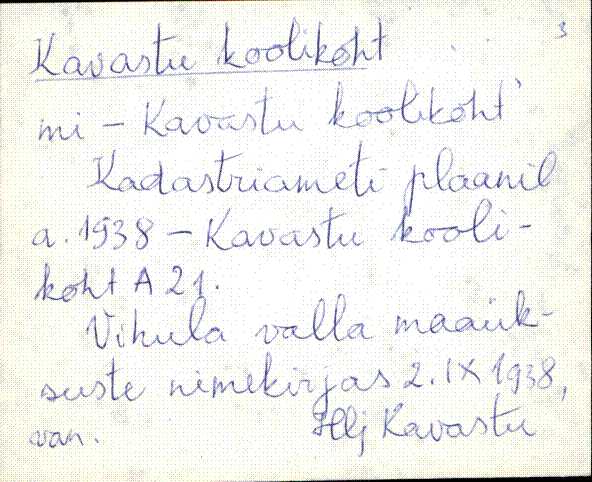 3
Kavastu koolikoht
mi – Kavastu koolikoht'
Kadastriameti plaanil
a. 1938 – Kavastu kooli-
koht A 21.
Vihula valla maaük-
suste nimekirjas 2. IX 1938,
van. Hlj Kavastu